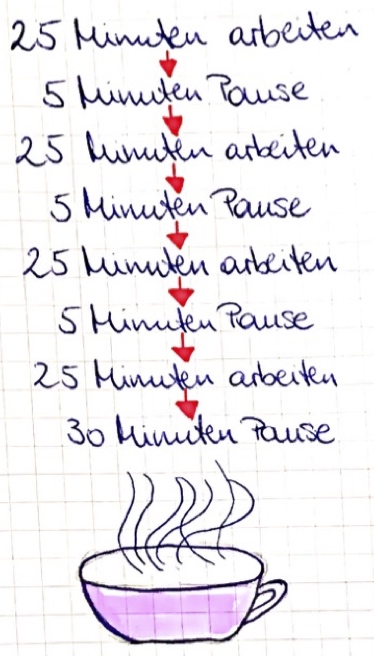 25 Minuten arbeiten
5 Minuten Pause
25 Minuten arbeiten
5 Minuten Pause
25 Minuten arbeiten
5 Minuten Pause
25 Minuten arbeiten
30 Minuten Pause